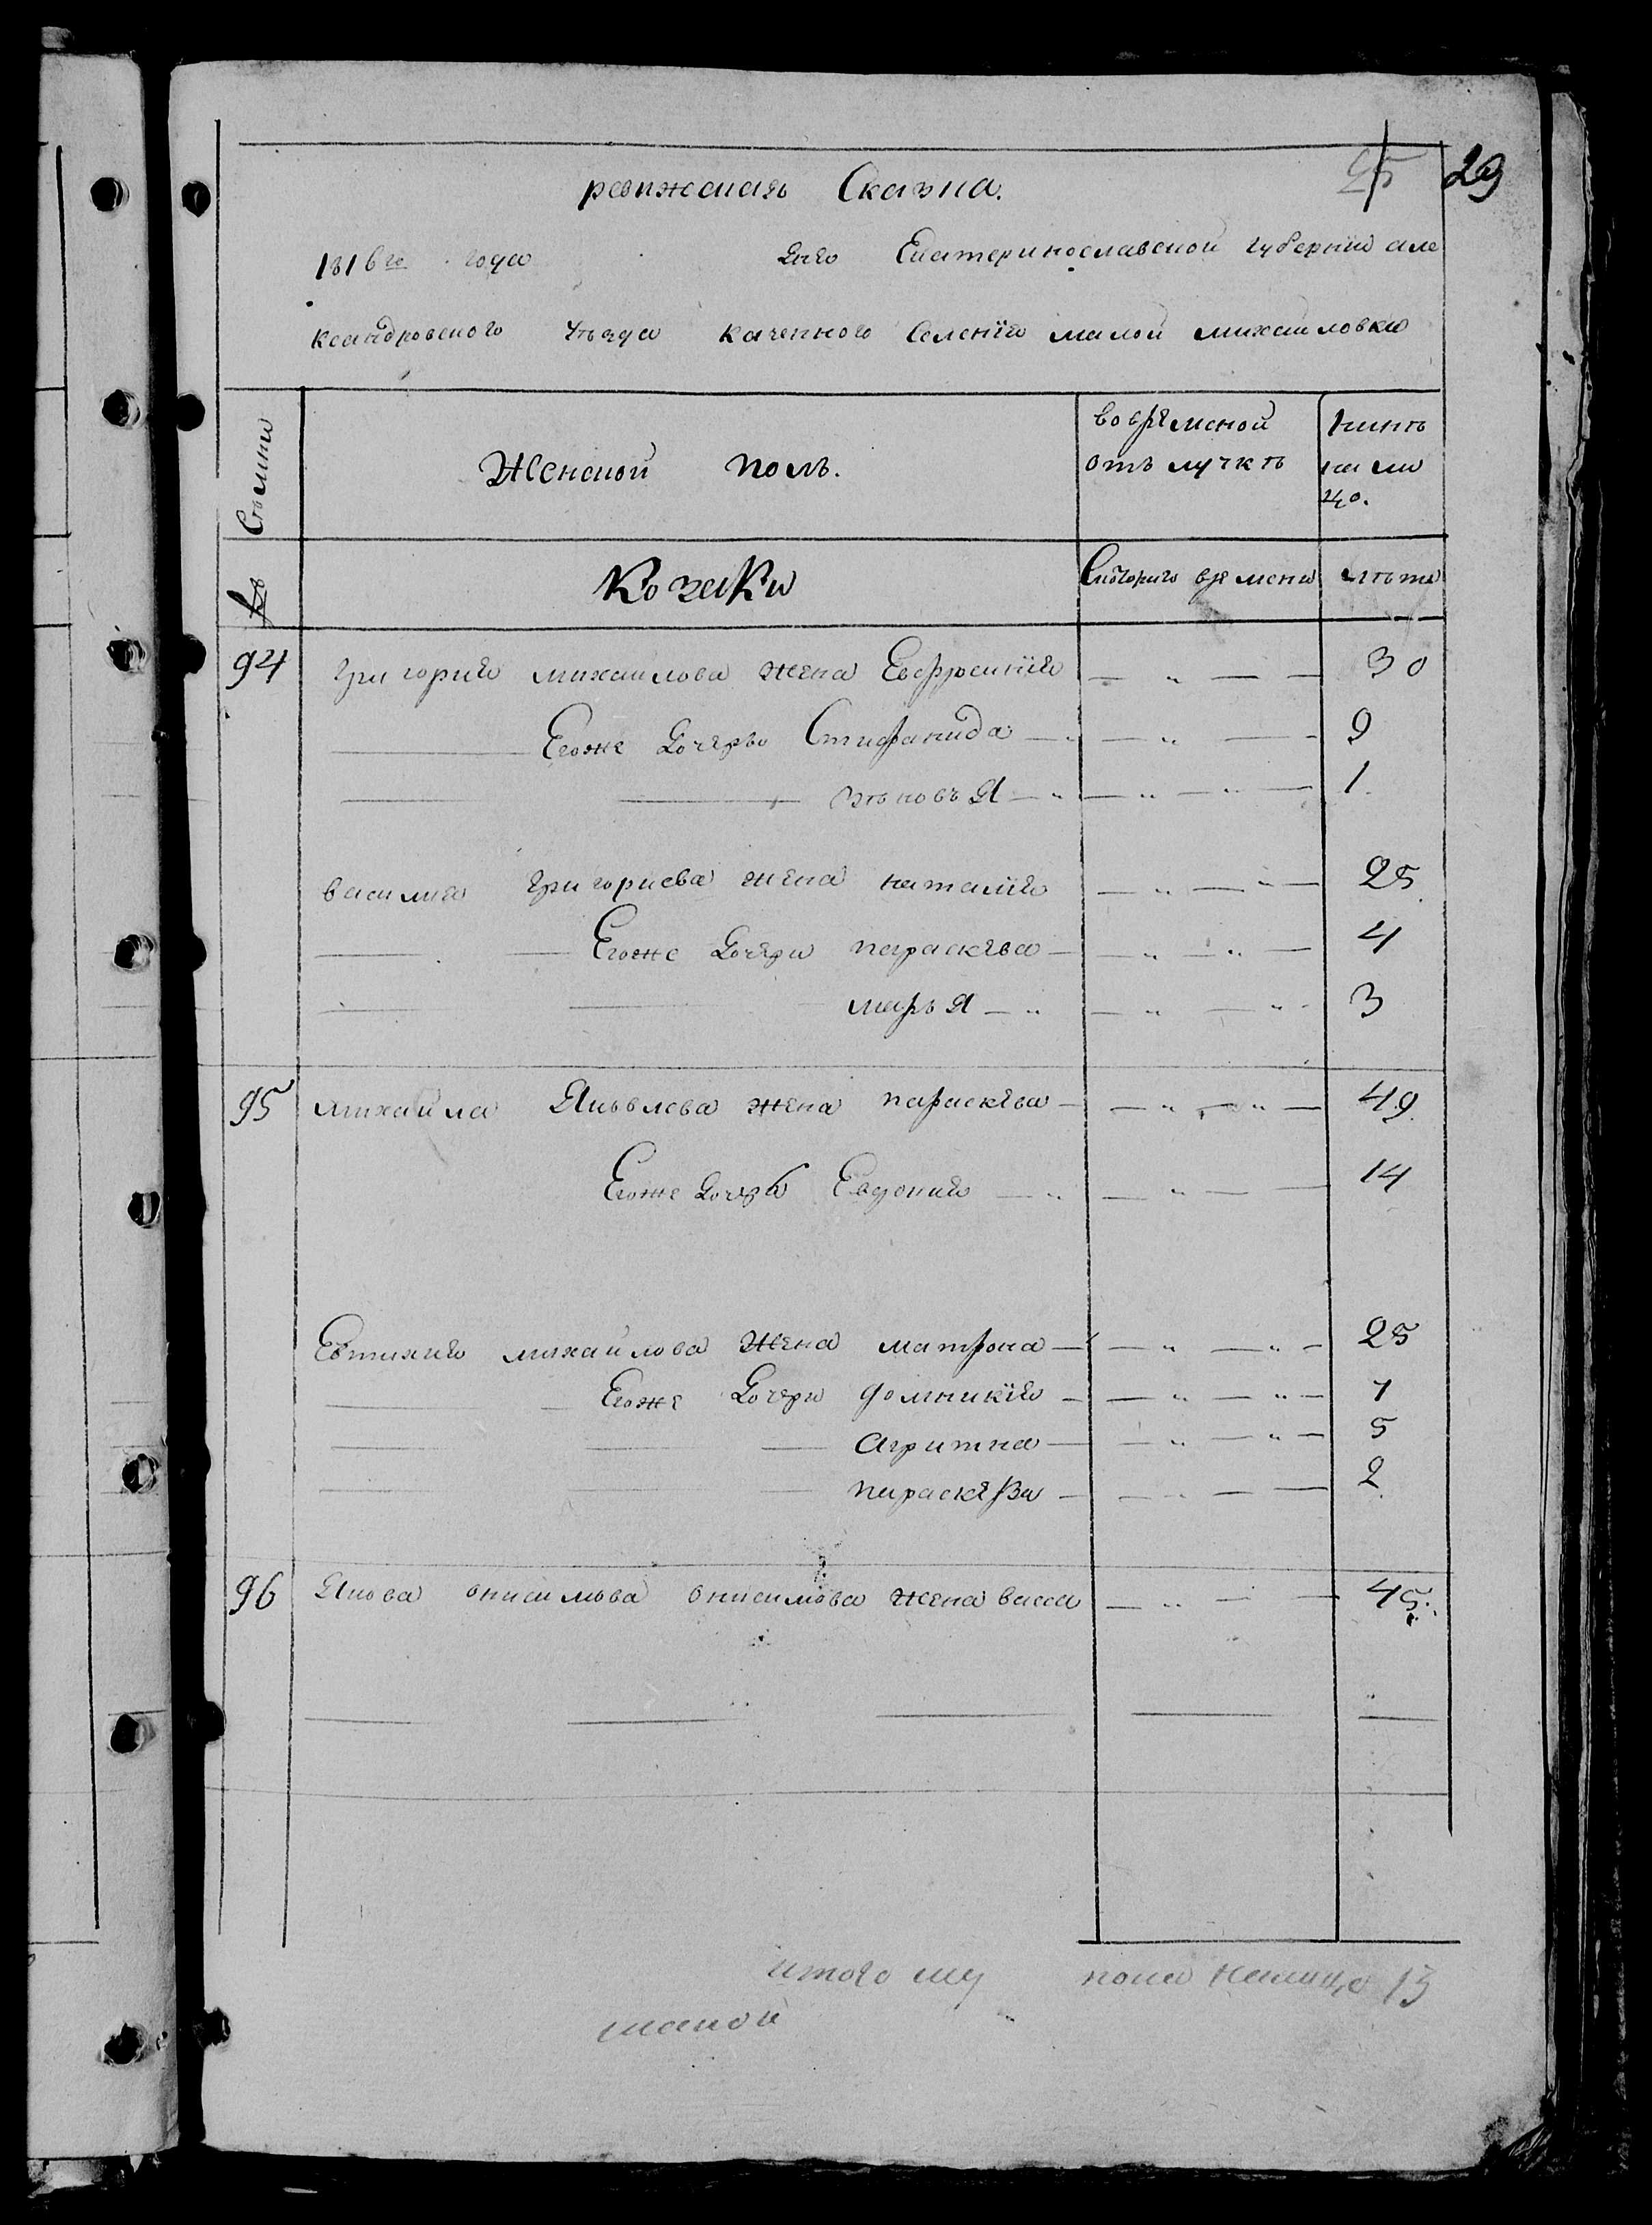 25 29
ревижская Сказка.
1816го года Дня Екатеринославской губернии але
ксандровского уѣзда казенного Селенїя малой михайловки
Семьи
Женской полъ.
во временой
отъ лучкѣ
нинѣ
на ли
цо.
№
Козаки
Скоторого времени
лѣта
94 григория михайлова жена Евфросинїя 30
Егоже Дочерь Стифанида 9
зѣновъя 1
василия григориева жена наталїя 25
Егоже Дочери параскева 4
маръя 3
95 михайла Яковлева жена параскева 49
Егоже Дочерь Евдокия 14
Евтихия михайлова жена матрона 25
Егоже Дочери домникїя 7
агрипна 5
параскева 2
96 Якова онисимова онисимова жена васса 45
итого
пола налицо 13